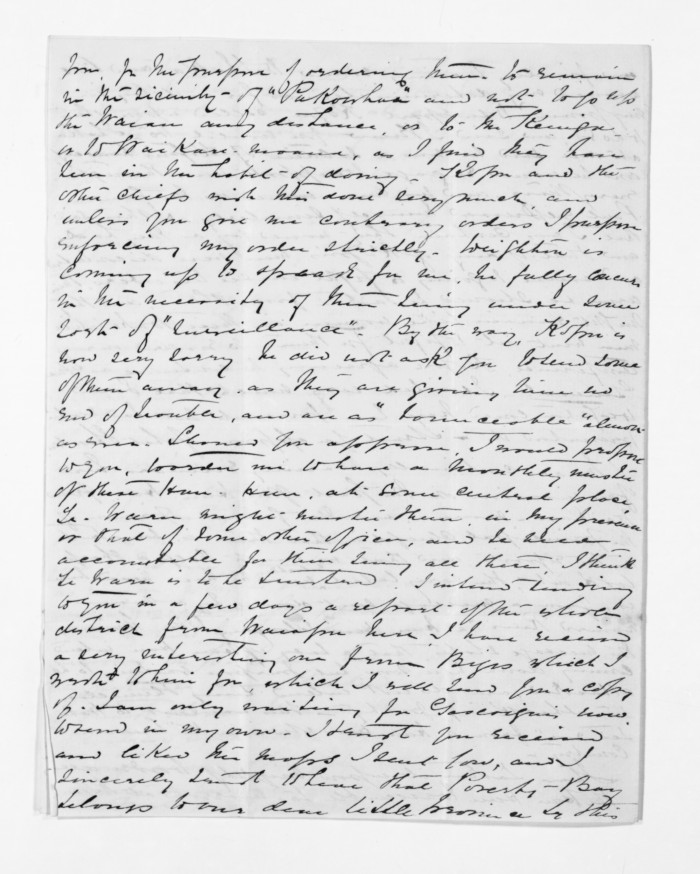 for, for the purpose of ordering them to remain
in the vicinity of "Pukowhai" and not to go up
the Wairau any distance, as to the Keniga
or to Waikare-moana, as I find they have
been in the habit of doing. Kopu and the
other chiefs wish this done very much, and
unless you give me contrary orders I purpose
enforcing my order strictly. Deighton is
coming up to speak for me, he fully concurs
in the necessity of them being under some
sort of "Surveillance". By the way, Kopu is
now very sorry he did not ask you to send some
of them away, as they are giving him no
end of trouble, and are as "troublesome" almost
as ever. Should you approve, I would propose
to you, to order me to have a monthly muster
of these Hau Haus, at some central place
Te Waru might muster them, in my presence
or that of some other officer, and be held
accountable for them being all there, I think
Te Waru is to be trusted. I intend sending
to you in a few days a report of the whole
district from Wairoa here, I have received
a very interesting one from Biggs which I
wrote to him for, which I will send you a copy
of. I am only waiting for Gascoigne's now
to send in my own. I trust you received
and liked the maps I sent you, and I
sincerely trust to hear that Poverty-Bay
belongs to our dear little Province by this